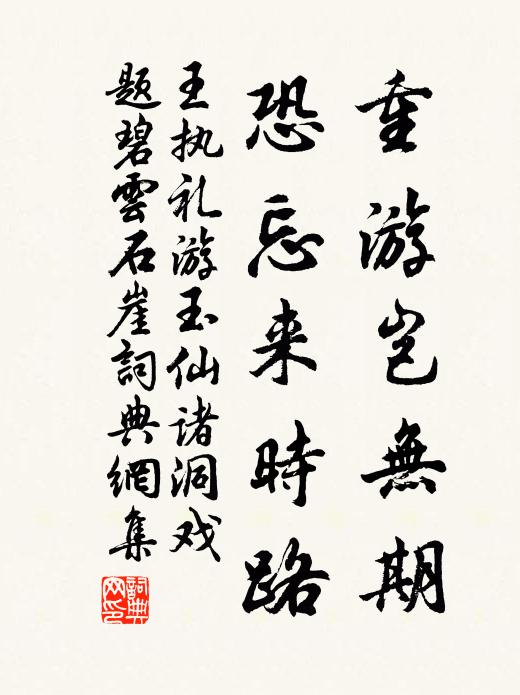 重游岂無期
恐忘来時路
王执礼游玉仙诸洞戏
题碧雲石崖詞典網集
詞典網印